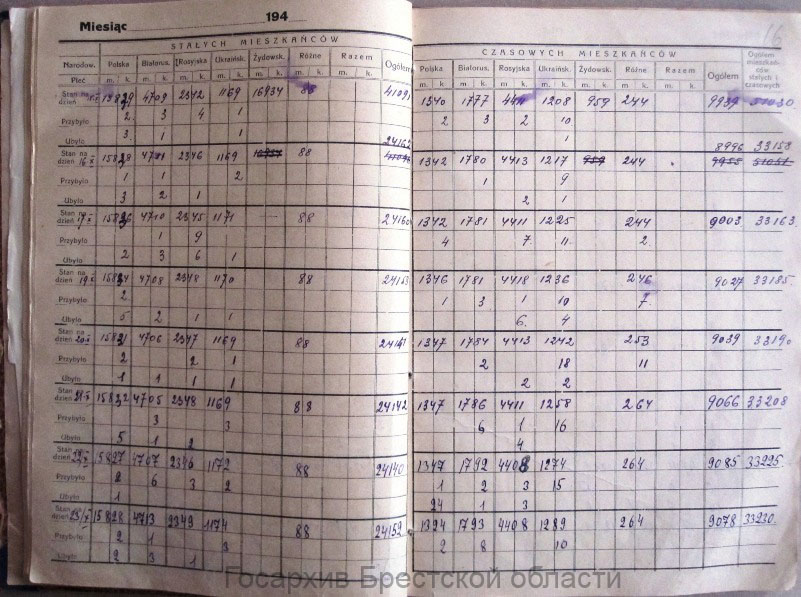 Miesiąc 194
STAŁYCH MIESZKAŃCÓW
Narodow. Polska Białorus. Rosyjska Ukraińsk. Żydowsk. Różne Razem Ogółem
Płeć m. k. m. k. m. k. m. k. m. k. m. k. m. k.
Stan na dzień 4709 2342 1169 16934 88
Przybyło 2 3 4 1
Ubyło 3 1 1 24162
Stan na dzień 16 X 2346 1169 16934 88
Przybyło 1 1 2
Ubyło 3 2 1
Stan na dzień 4710 2345 1171 — 88 24160
Przybyło 1 9
Ubyło 2 3 6 1
Stan na dzień 19 X 4708 2348 1170 88 24153
Przybyło 2
Ubyło 5 2 1 1
Stan na dzień 20 X 15831 4706 2347 1169 88 24141
Przybyło 2 2 1
Ubyło 1 1 1 1
Stan na dzień 21 X 15832 4705 2348 1169 88 24142
Przybyło 3 3
Ubyło 5 1 2
Stan na dzień 22 X 15827 4707 2346 1172 88 24140
Przybyło 2 6 3 2
Ubyło 1
Stan na dzień 23/X 15828 4713 2349 1174 88 24152
Przybyło 2 1 3
Ubyło 2 3 1
16
CZASOWYCH MIESZKAŃCÓW
Polska Białorus. Rosyjska Ukraińsk. Żydowsk. Różne Razem Ogółem Ogółem mieszkańców stałych i czasowych
m. k. m. k. m. k. m. k. m. k. m. k. m. k.
1340 1777 1208 959 244 9939 51030
2 3 2 10
1 8996 33158
1342 1780 4413 1217 959 244 9955
1 9
2 1
1342 1781 4411 1225 244 9003 33163
4 7 11 2
1346 1781 4418 1236 246 9027 33185
1 3 1 10 7
6 4
1347 1784 4413 1242 253 9039 33190
2 18 11
2 2
1347 1786 4411 1258 264 9066 33208
6 1 16
4
1347 1792 4408 1274 264 9085 33225
1 2 3 15
24 1 3
1324 1793 4408 1289 264 9078 33230
2 8 10
Госархив Брестской области